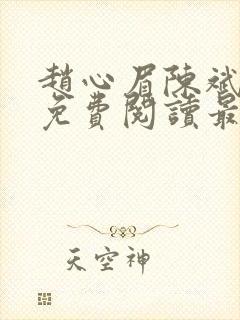 趙心眉陳斌
免費閱讀最
天空神